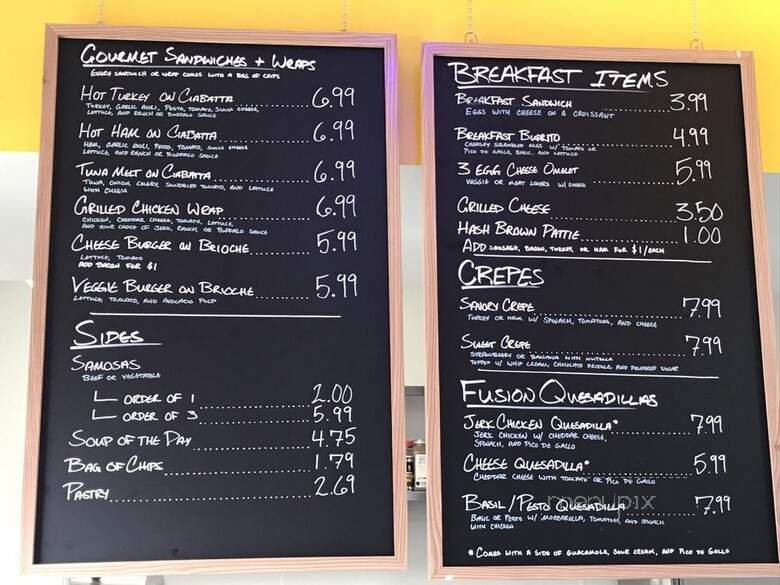 GOURMET SANDWICHES + WRAPS
EVERY SANDWICH OR WRAP COMES WITH A BAG OF CHIPS
HOT TURKEY ON CIABATTA 6.99
TURKEY, GARLIC AIOLI, PESTO, TOMATO, SWISS CHEESE,
LETTUCE, AND RANCH OR BUFFALO SAUCE
HOT HAM ON CIABATTA 6.99
HAM, GARLIC AIOLI, PESTO, TOMATO, SWISS CHEESE
LETTUCE, AND RANCH OR BUFFALO SAUCE
TUNA MELT ON CIABATTA 6.99
TUNA, ONION, CELERY, SUNDRIED TOMATO, AND LETTUCE
WITH CHEESE
GRILLED CHICKEN WRAP 6.99
CHICKEN, CHEDDAR CHEESE, TOMATO, LETTUCE,
AND YOUR CHOICE OF JERK, RANCH, OR BUFFALO SAUCE
CHEESE BURGER ON BRIOCHE 5.99
LETTUCE, TOMATO
ADD BACON FOR $1
VEGGIE BURGER ON BRIOCHE 5.99
LETTUCE, TOMATO, AND AVOCADO PULP
SIDES
SAMOSAS
BEEF OR VEGETABLE
ORDER OF 1 2.00
ORDER OF 3 5.99
SOUP OF THE DAY 4.75
BAG OF CHIPS 1.79
PASTRY 2.69
BREAKFAST ITEMS
BREAKFAST SANDWICH 3.99
EGGS WITH CHEESE ON A CROISSANT
BREAKFAST BURRITO 4.99
CHEESEY SCRAMBLED EGGS W/ TOMATO OR
PICO DE GALLO, BASIL, AND LETTUCE
3 EGG CHEESE OMELET 5.99
VEGGIE OR MEAT LOVERS W/ CHEESE
GRILLED CHEESE 3.50
HASH BROWN PATTIE 1.00
ADD SAUSAGE, BACON, TURKEY, OR HAM FOR $1/EACH
CREPES
SAVORY CREPE 7.99
TURKEY OR HAM W/ SPINACH, TOMATOES, AND CHEESE
SWEET CREPE 7.99
STRAWBERRY OR BANANA WITH NUTELLA
TOPPED W/ WHIP CREAM, CHOCOLATE DRIZZLE, AND POWDERED SUGAR
FUSION QUESADILLAS
JERK CHICKEN QUESADILLA* 7.99
JERK CHICKEN W/ CHEDDAR CHEESE,
SPINACH, AND PICO DE GALLO
CHEESE QUESADILLA* 5.99
CHEDDAR CHEESE WITH TOMATO OR PICO DE GALLO
BASIL/PESTO QUESADILLA 7.99
BASIL OR PESTO W/ MOZZARELLA, TOMATOES, AND SPINACH
WITH CHICKEN
* COMES WITH A SIDE OF GUACAMOLE, SOUR CREAM, AND PICO DE GALLO
menupix